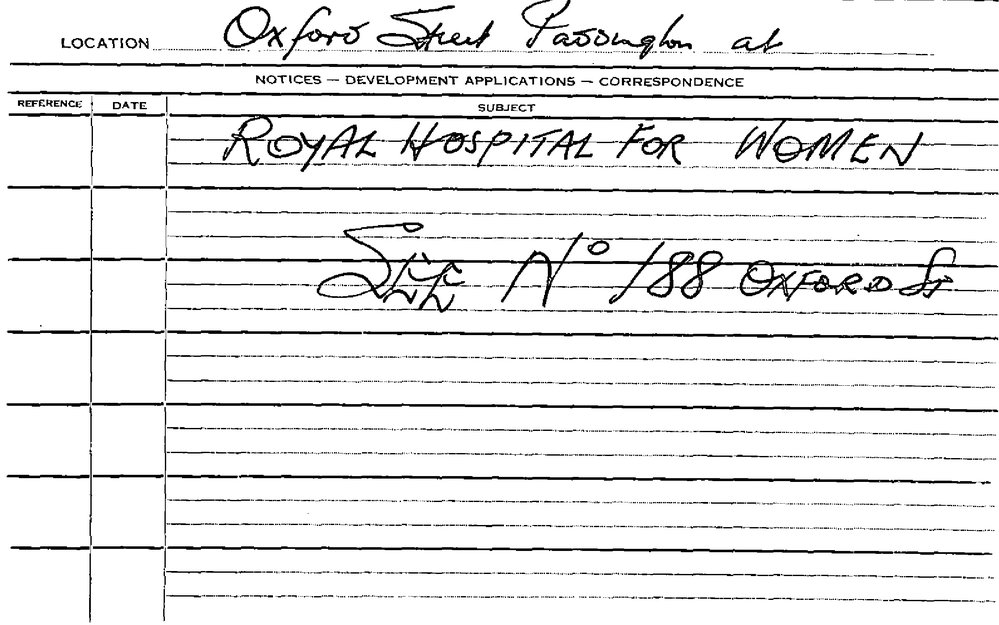 LOCATION Oxford Street Paddington at
NOTICES — DEVELOPMENT APPLICATIONS — CORRESPONDENCE
REFERENCE DATE SUBJECT
ROYAL HOSPITAL FOR WOMEN
See No 188 OXFORD St